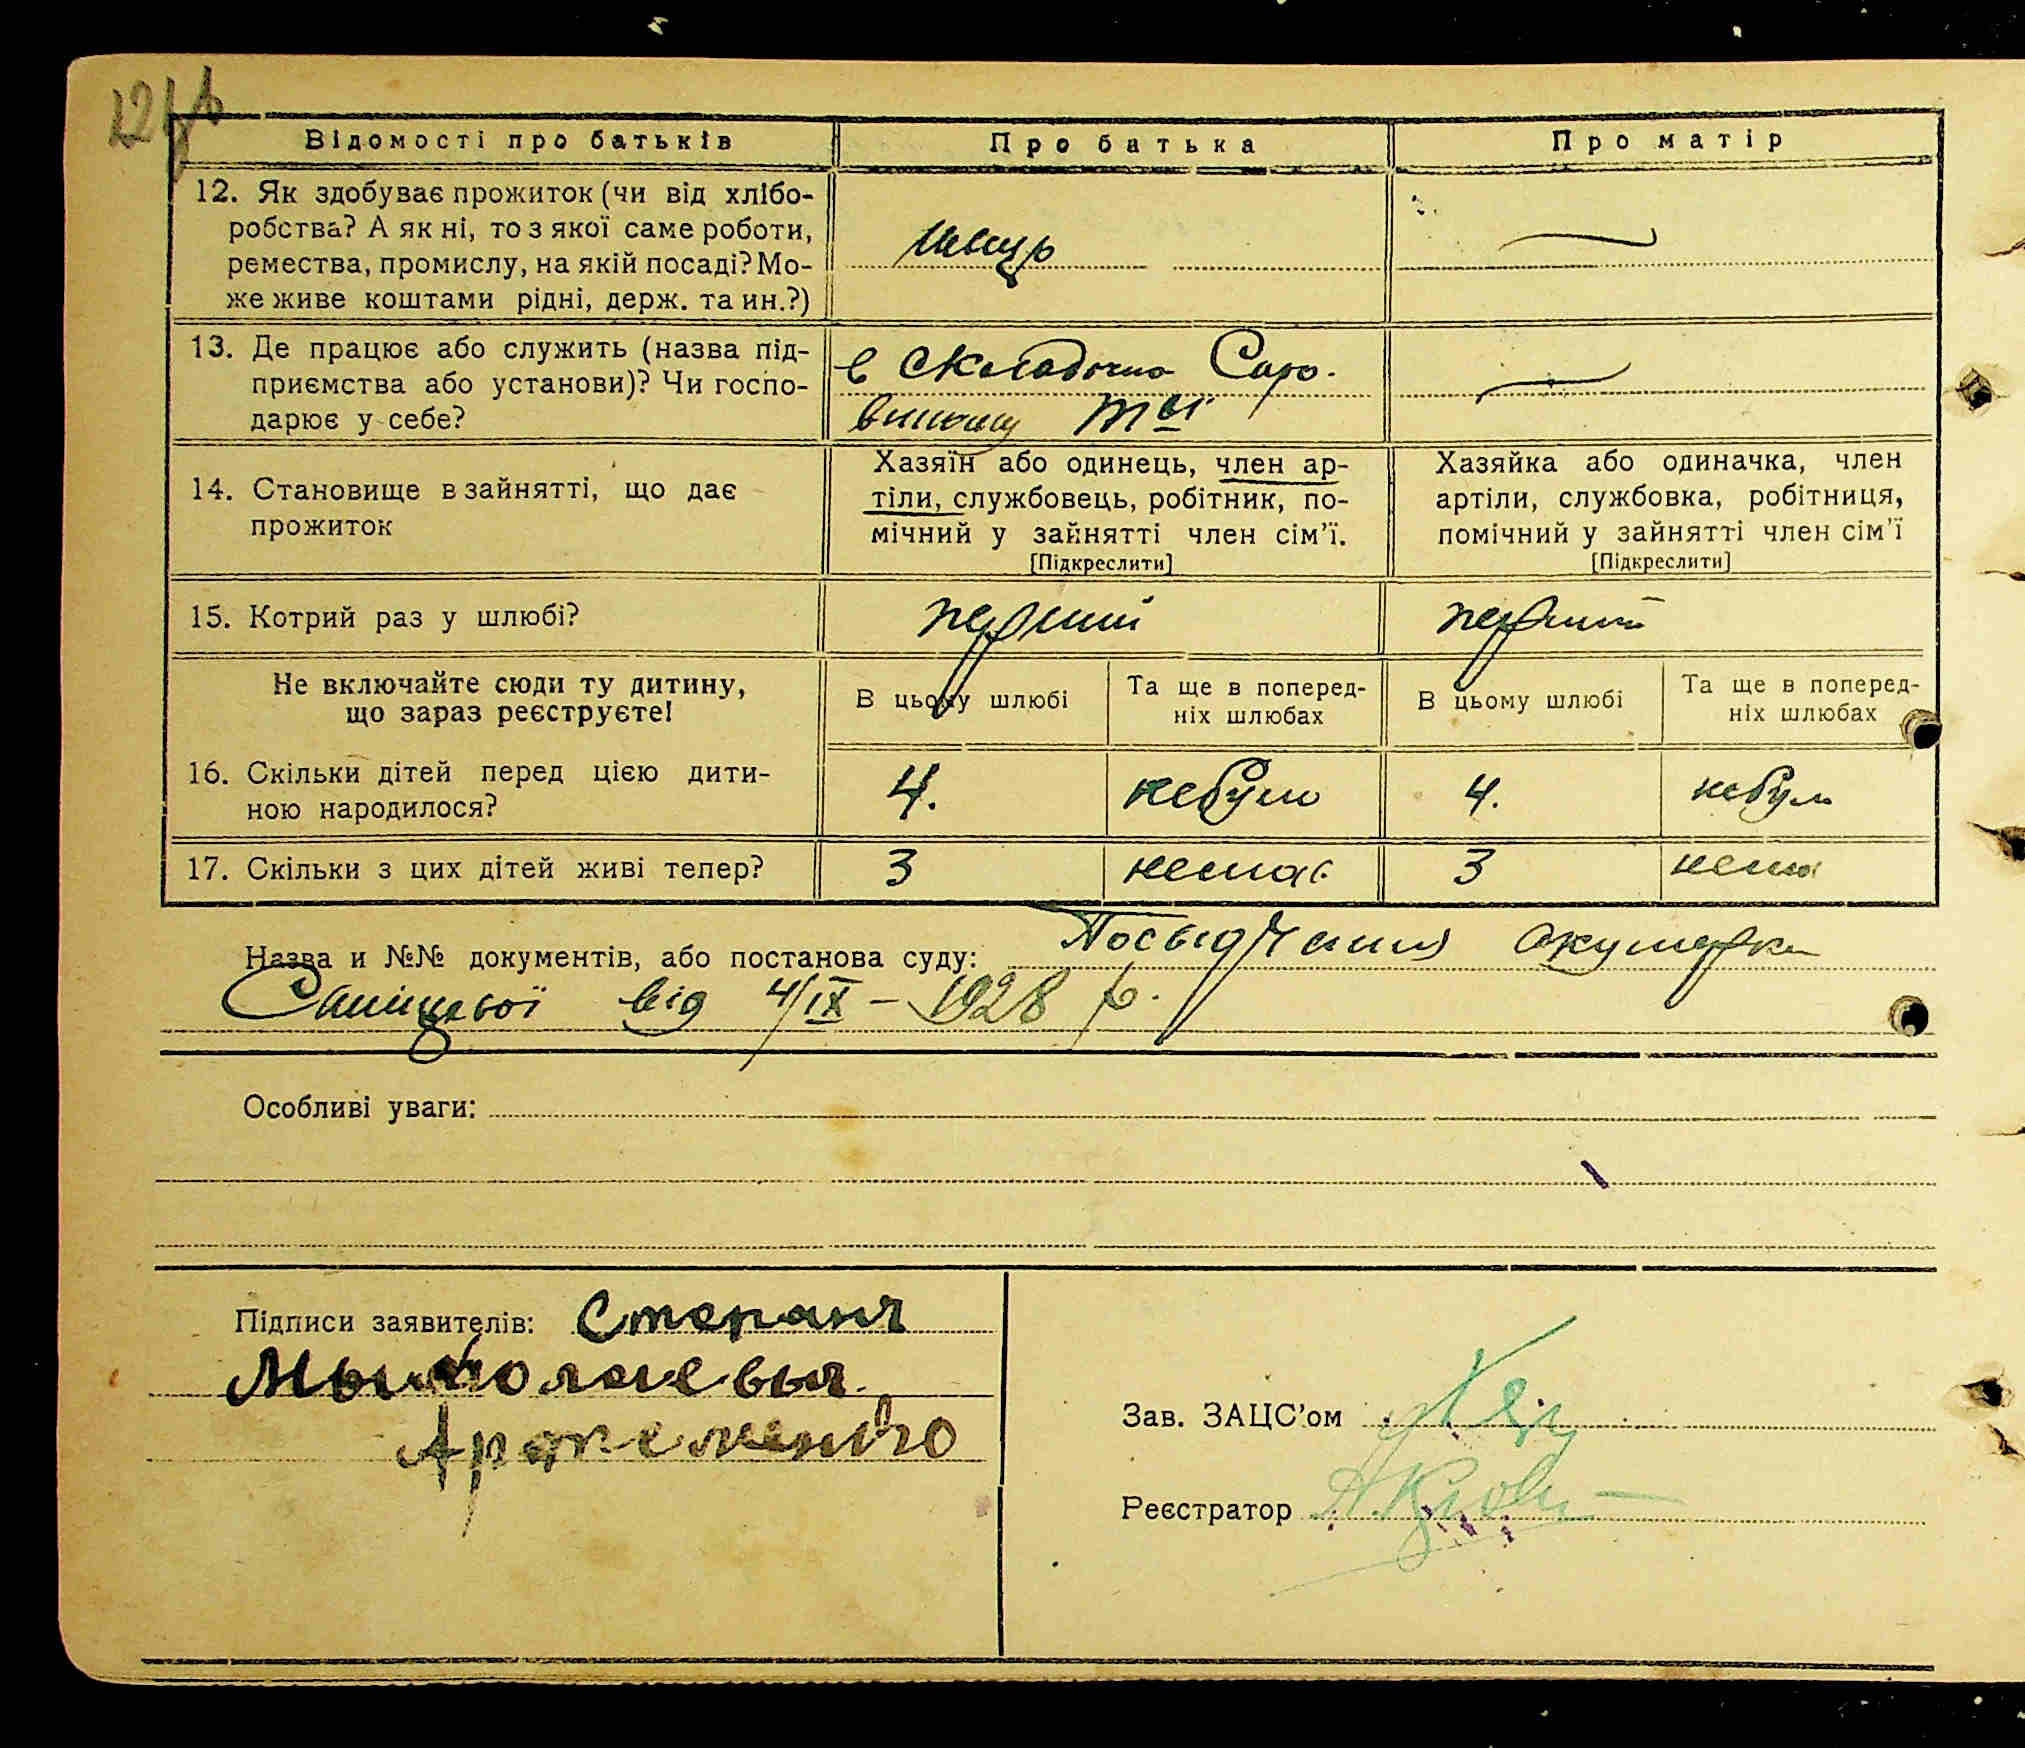 Відомості про батьків
Про батька
Про матір
12. Як здобуває прожиток (чи від хлібо-
робства? А як ні, то з якої саме роботи,
ремества, промислу, на якій посаді? Мо-
же живе коштами рідні, держ. та ин.?)
швець
13. Де працює або служить (назва під-
приємства або установи)? Чи госпо-
дарює у себе?
в
14. Становище в зайнятті, що дає
прожиток
Хазяїн або одинець, член ар-
тіли, службовець, робітник, по-
мічний у зайнятті член сім'ї.
[Підкреслити]
Хазяйка або одиначка, член
артіли, службовка, робітниця,
помічний у зайнятті член сім'ї
[Підкреслити]
15. Котрий раз у шлюбі?
перший
перший
Не включайте сюди ту дитину,
що зараз реєструєте!
В цьому шлюбі
Та ще в поперед-
ніх шлюбах
В цьому шлюбі
Та ще в поперед-
ніх шлюбах
16. Скільки дітей перед цією дити-
ною народилося?
4.
небуло
4.
небуло
17. Скільки з цих дітей живі тепер?
3
немає
3
нема
Назва и №№ документів, або постанова суду: Посьідчання акушерки
від 4/IX – 1928 р.
Особливі уваги:
Підписи заявителів: Степанъ
Мыколаевыч
Артеменко
Зав. ЗАЦС'ом
Реєстратор